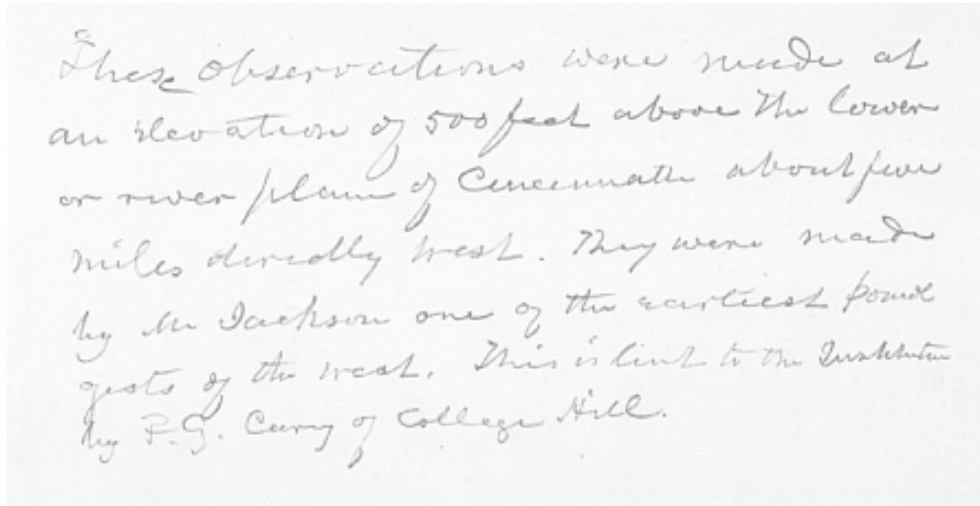 These observations were made at
an elevation of 500 feet above the lower
or river plain of Cincinnati about five
miles directly west. They were made
by Mr Jackson one of the earliest pomol
gests of the west. This is lent to the Institute
by F. G. Cary of College Hill.